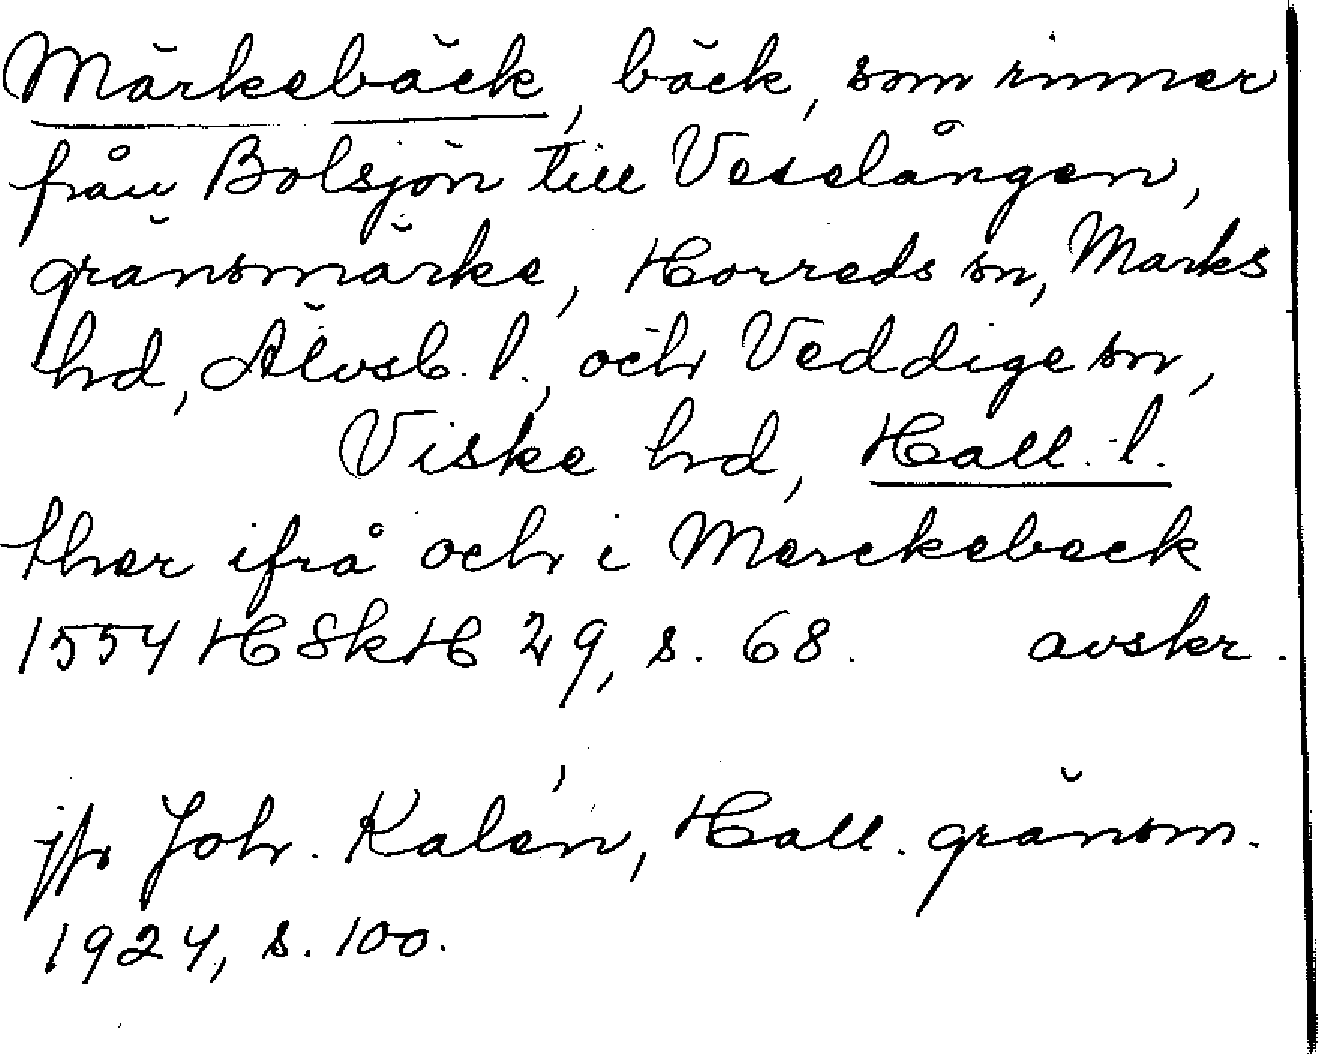 Märkebäck, bäck, som rinner
från Bolsjön till Veselången,
gränsmärke, Horreds sn, Marks
hd, Älvsb. l., och Veddige sn,
Viske hd, Hall. l.
ther ifrå och i Merckebeck
1554 HSkH 29, s. 68. avskr.
jfr Joh. Kalén, Hall. gränsm.
1924, s. 100.